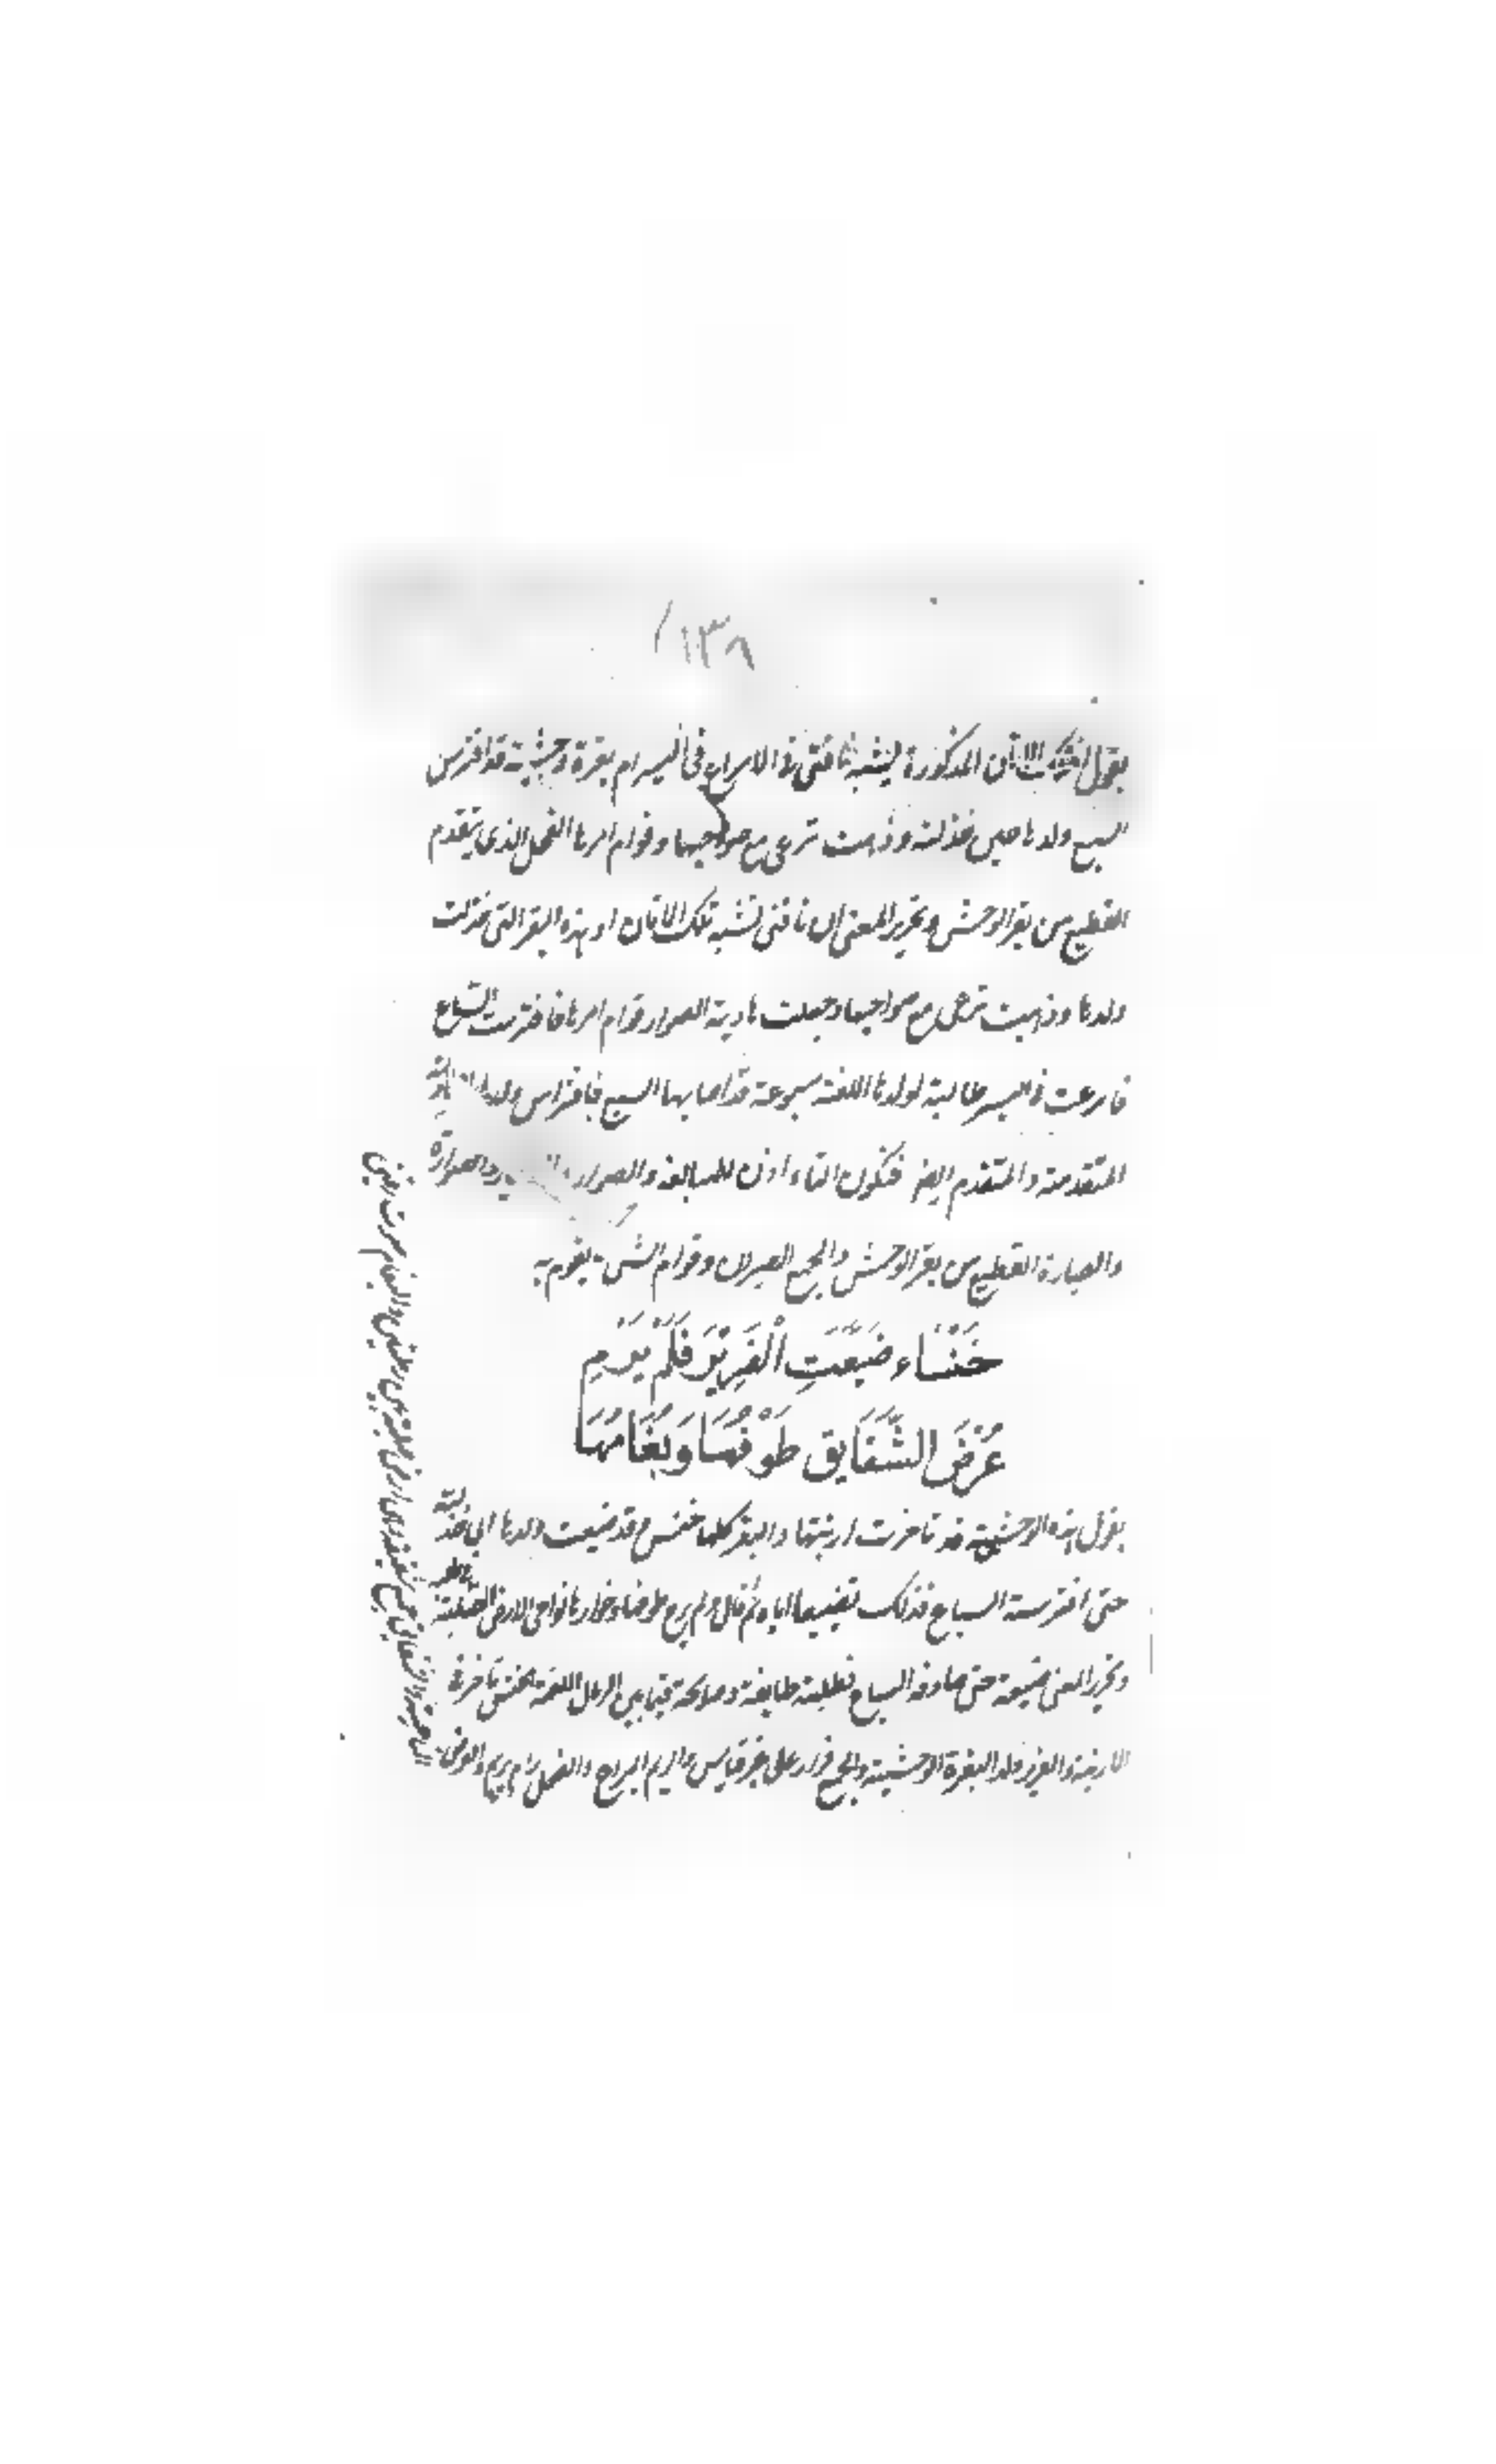 ١٣٨
يقول افتلك الاتان المذكورة تشبه ناقتى فى الاسراع فى السير ام بقرة وحشية قد افترس
السبع ولدها حين خذلته وذهبت ترعى مع صواحبها وقوام امرها الفحل الذى يتقدم
القطيع من بقر الوحش وتحرير المعنى ان ناقتى تشبه تلك الاتان او هذه البقر التى خذلت
ولدها وذهبت ترعى مع صواحبها وجعلت هادية الصوار قوام امرها فافترست السباع
فاسرعت فى السير طالبة لولدها اللغة مسبوعة قد اصابها السبع بافتراس ولدها
المتقدمة والمتقدم ايضا فتكون التاء اذن للمبالغة والصوار والصوارة
والصيارة القطيع من بقر الوحش والجمع الصيران وقوام الشى يقوم به
خَنْسَاء ضَيَّعَتِ الْفَرِيْرَ فَلَمْ يَرِمْ
عُرْضَ الشَّقَايِق طَوْفُهَا وَبُغَامُهَا
يقول هذه الوحشية قد تاخرت ارنبتها والبقر كلها خنس وقد ضيعت ولدها اى خذلته
حتى افترسته السباع فذلك تضييعها اياه ثم قال ولم يرم طوفها وخوارها نواحى الارض الصلبة
وتحرير المعنى ضيعته حتى صادفه السباع فطلبته طايفة وصايحة فيما بين الرمال اللغة الخنس تاخر فى
الارنبة والفرير ولد البقرة الوحشية والجمع فرار على غير قياس والريم البراح والفعل رام يريم والعرض